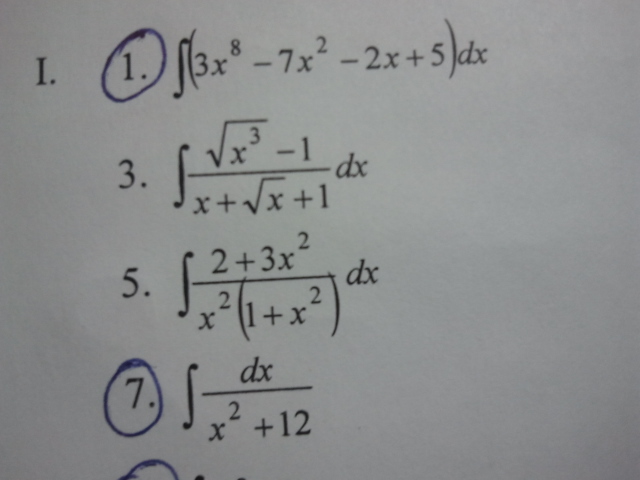 I. 1. ∫(3x⁸ − 7x² − 2x + 5)dx
3. ∫ (√x³ − 1)/(x + √x + 1) dx
5. ∫ (2 + 3x²)/(x²(1 + x²)) dx
7. ∫ dx/(x² + 12)